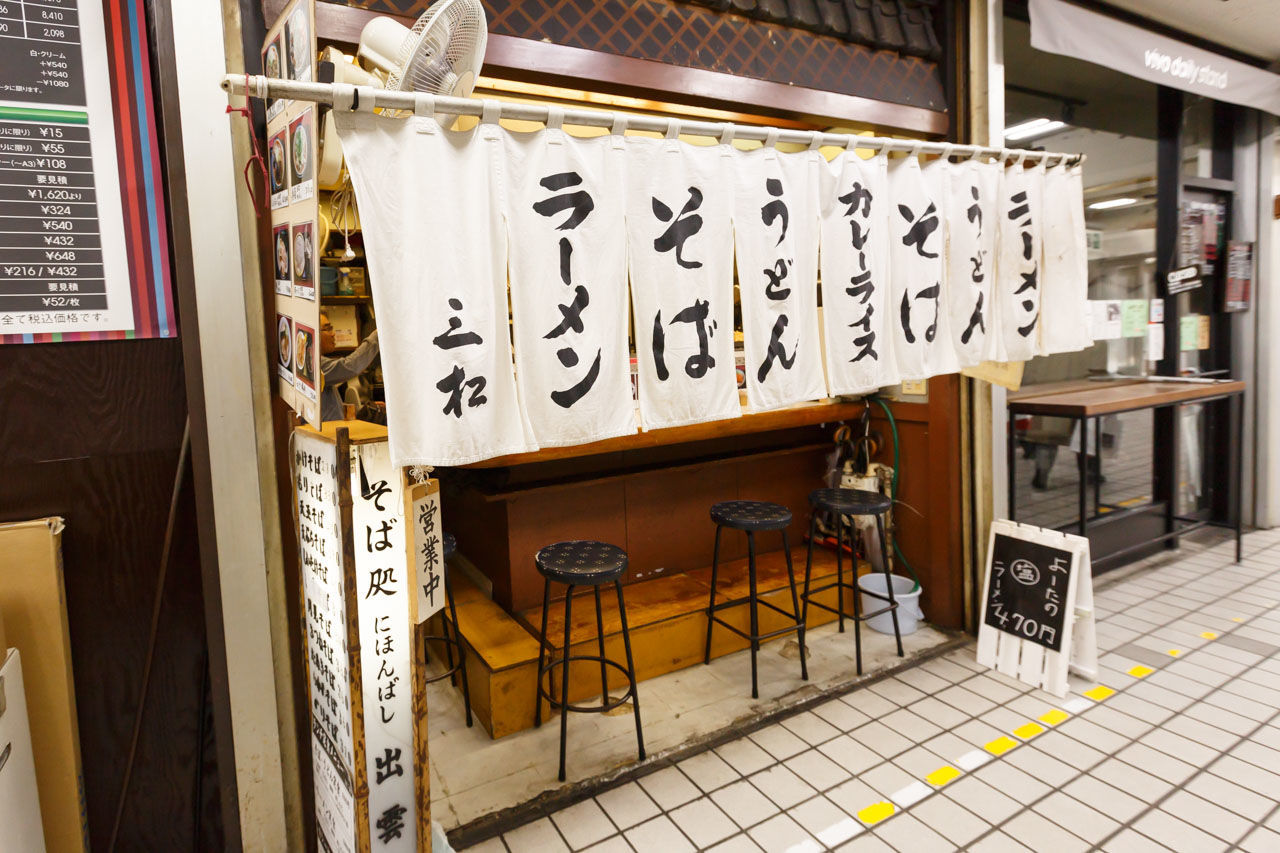 8,410
2,098
白・クリーム
+¥540
+¥540
−¥1080
に限ります
りに限り) ¥15
りに限り) ¥55
(～A3) ¥108
要見積
¥1,620より
¥324
¥540
¥432
¥648
¥216 / ¥432
要見積
¥52/枚
全て税込価格です。
三松
ラーメン
そば
うどん
カレーライス
そば
うどん
ラーメン
vivo daily stand
かけそば
もりそば
そば処 にほんばし 出雲
営業中
よーたの
塩
ラーメン
470円